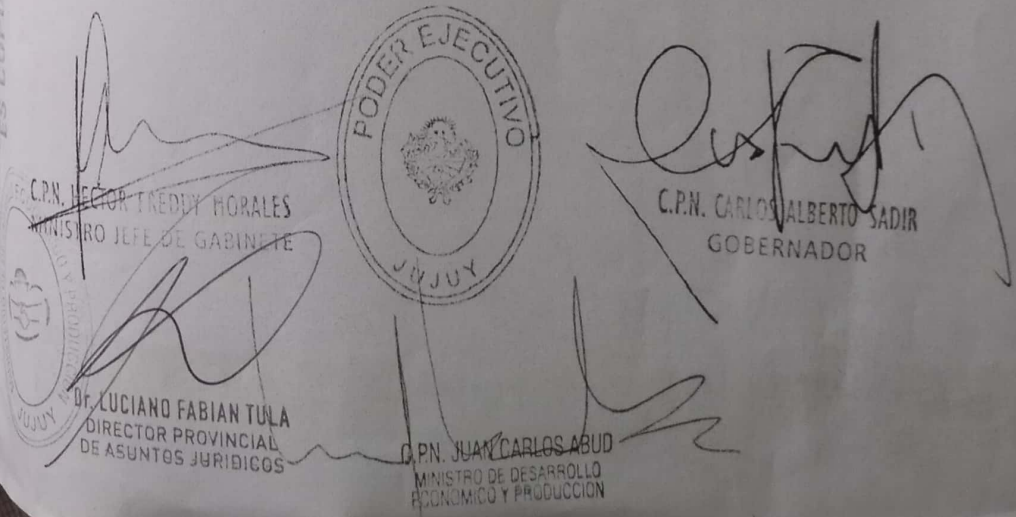 PODER EJECUTIVO
JUJUY
C.P.N. HECTOR FREDDY MORALES
MINISTRO JEFE DE GABINETE
C.P.N. CARLOS ALBERTO SADIR
GOBERNADOR
JUJUY
Dr. LUCIANO FABIAN TULA
DIRECTOR PROVINCIAL
DE ASUNTOS JURIDICOS
C.P.N. JUAN CARLOS ABUD
MINISTRO DE DESARROLLO
ECONOMICO Y PRODUCCION